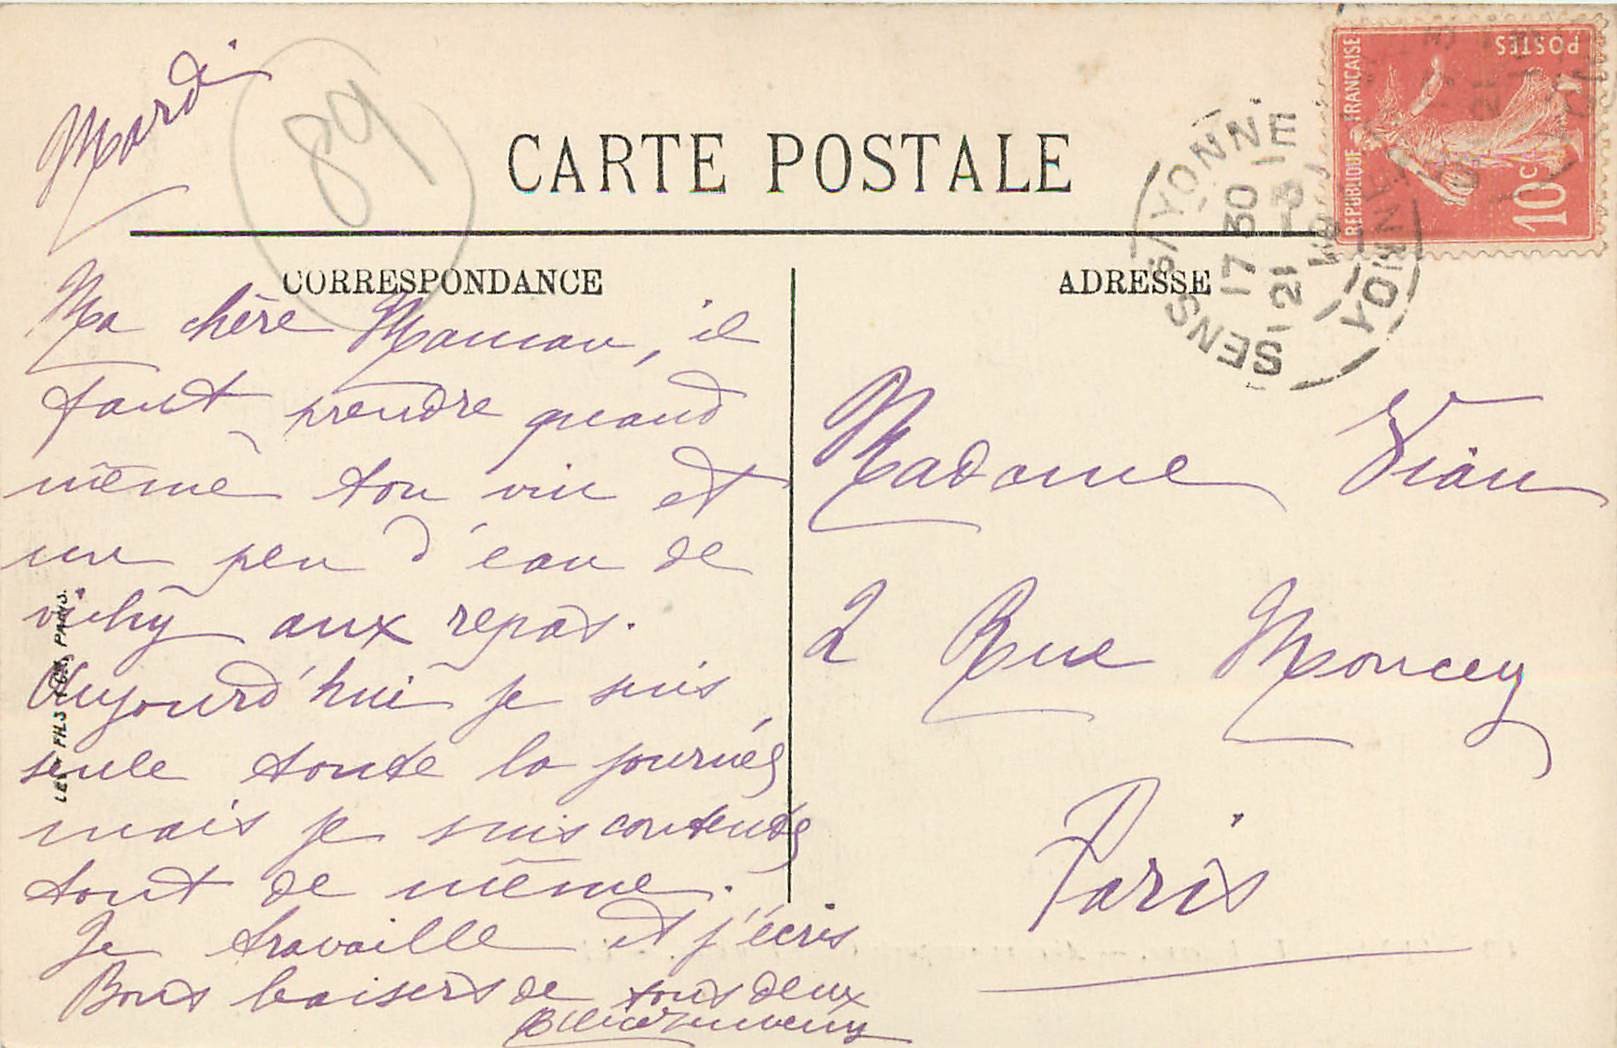 Mardi
89
CARTE POSTALE
CORRESPONDANCE
ADRESSE
REPUBLIQUE FRANCAISE
POSTES
10c
SENS S/YONNE
17 30
21 - 3
YONNE
Ma chère Maman, il
faut prendre quand
même ton vin et
un peu d'eau de
vichy aux repas.
Aujourd'hui je suis
seule toute la journée
mais je suis contente
tout de même.
Je travaille et j'écris
Bons baisers de tous deux
Madame Vian
2 Rue Moncey
Paris
LEVY FILS PARIS.